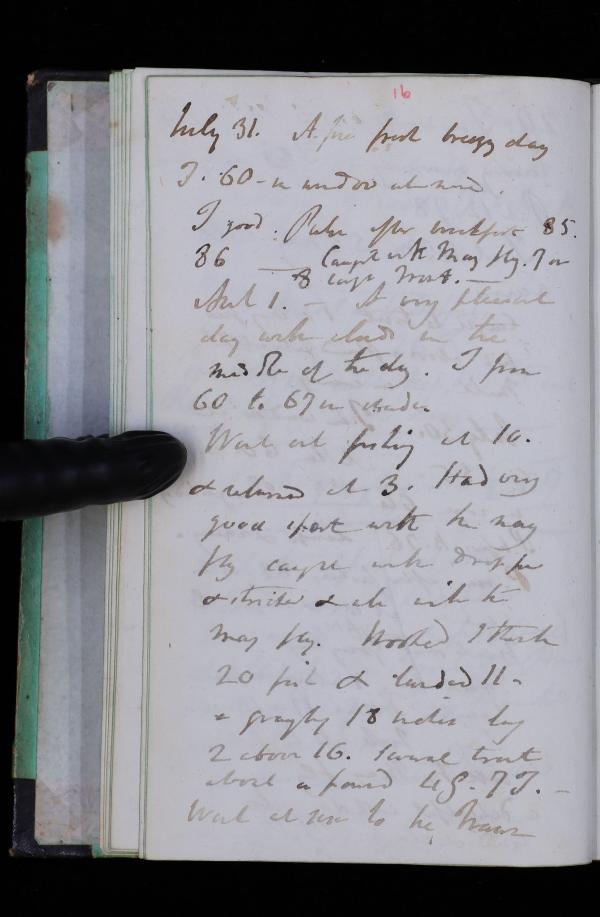 16
July 31. A fine fresh breezy day
T. 60 - in window at
T good. Pulse after breakfast 85.
86 — Caught with May fly. 7 or
8 large Trout. —
Aust 1. — A very pleasant
day with clouds in the
middle of the day. T from
60 to 67 in shade.
Went out fishing at 10.
& returned at 3. Had very
good sport with the may
fly caught with
& the
may fly. Hooked I think
20 fish & landed 11 -
a grayling 18 inches long
2 about 16. Several trout
about a pound 4 G. 7 T. —
Went at to the Traun